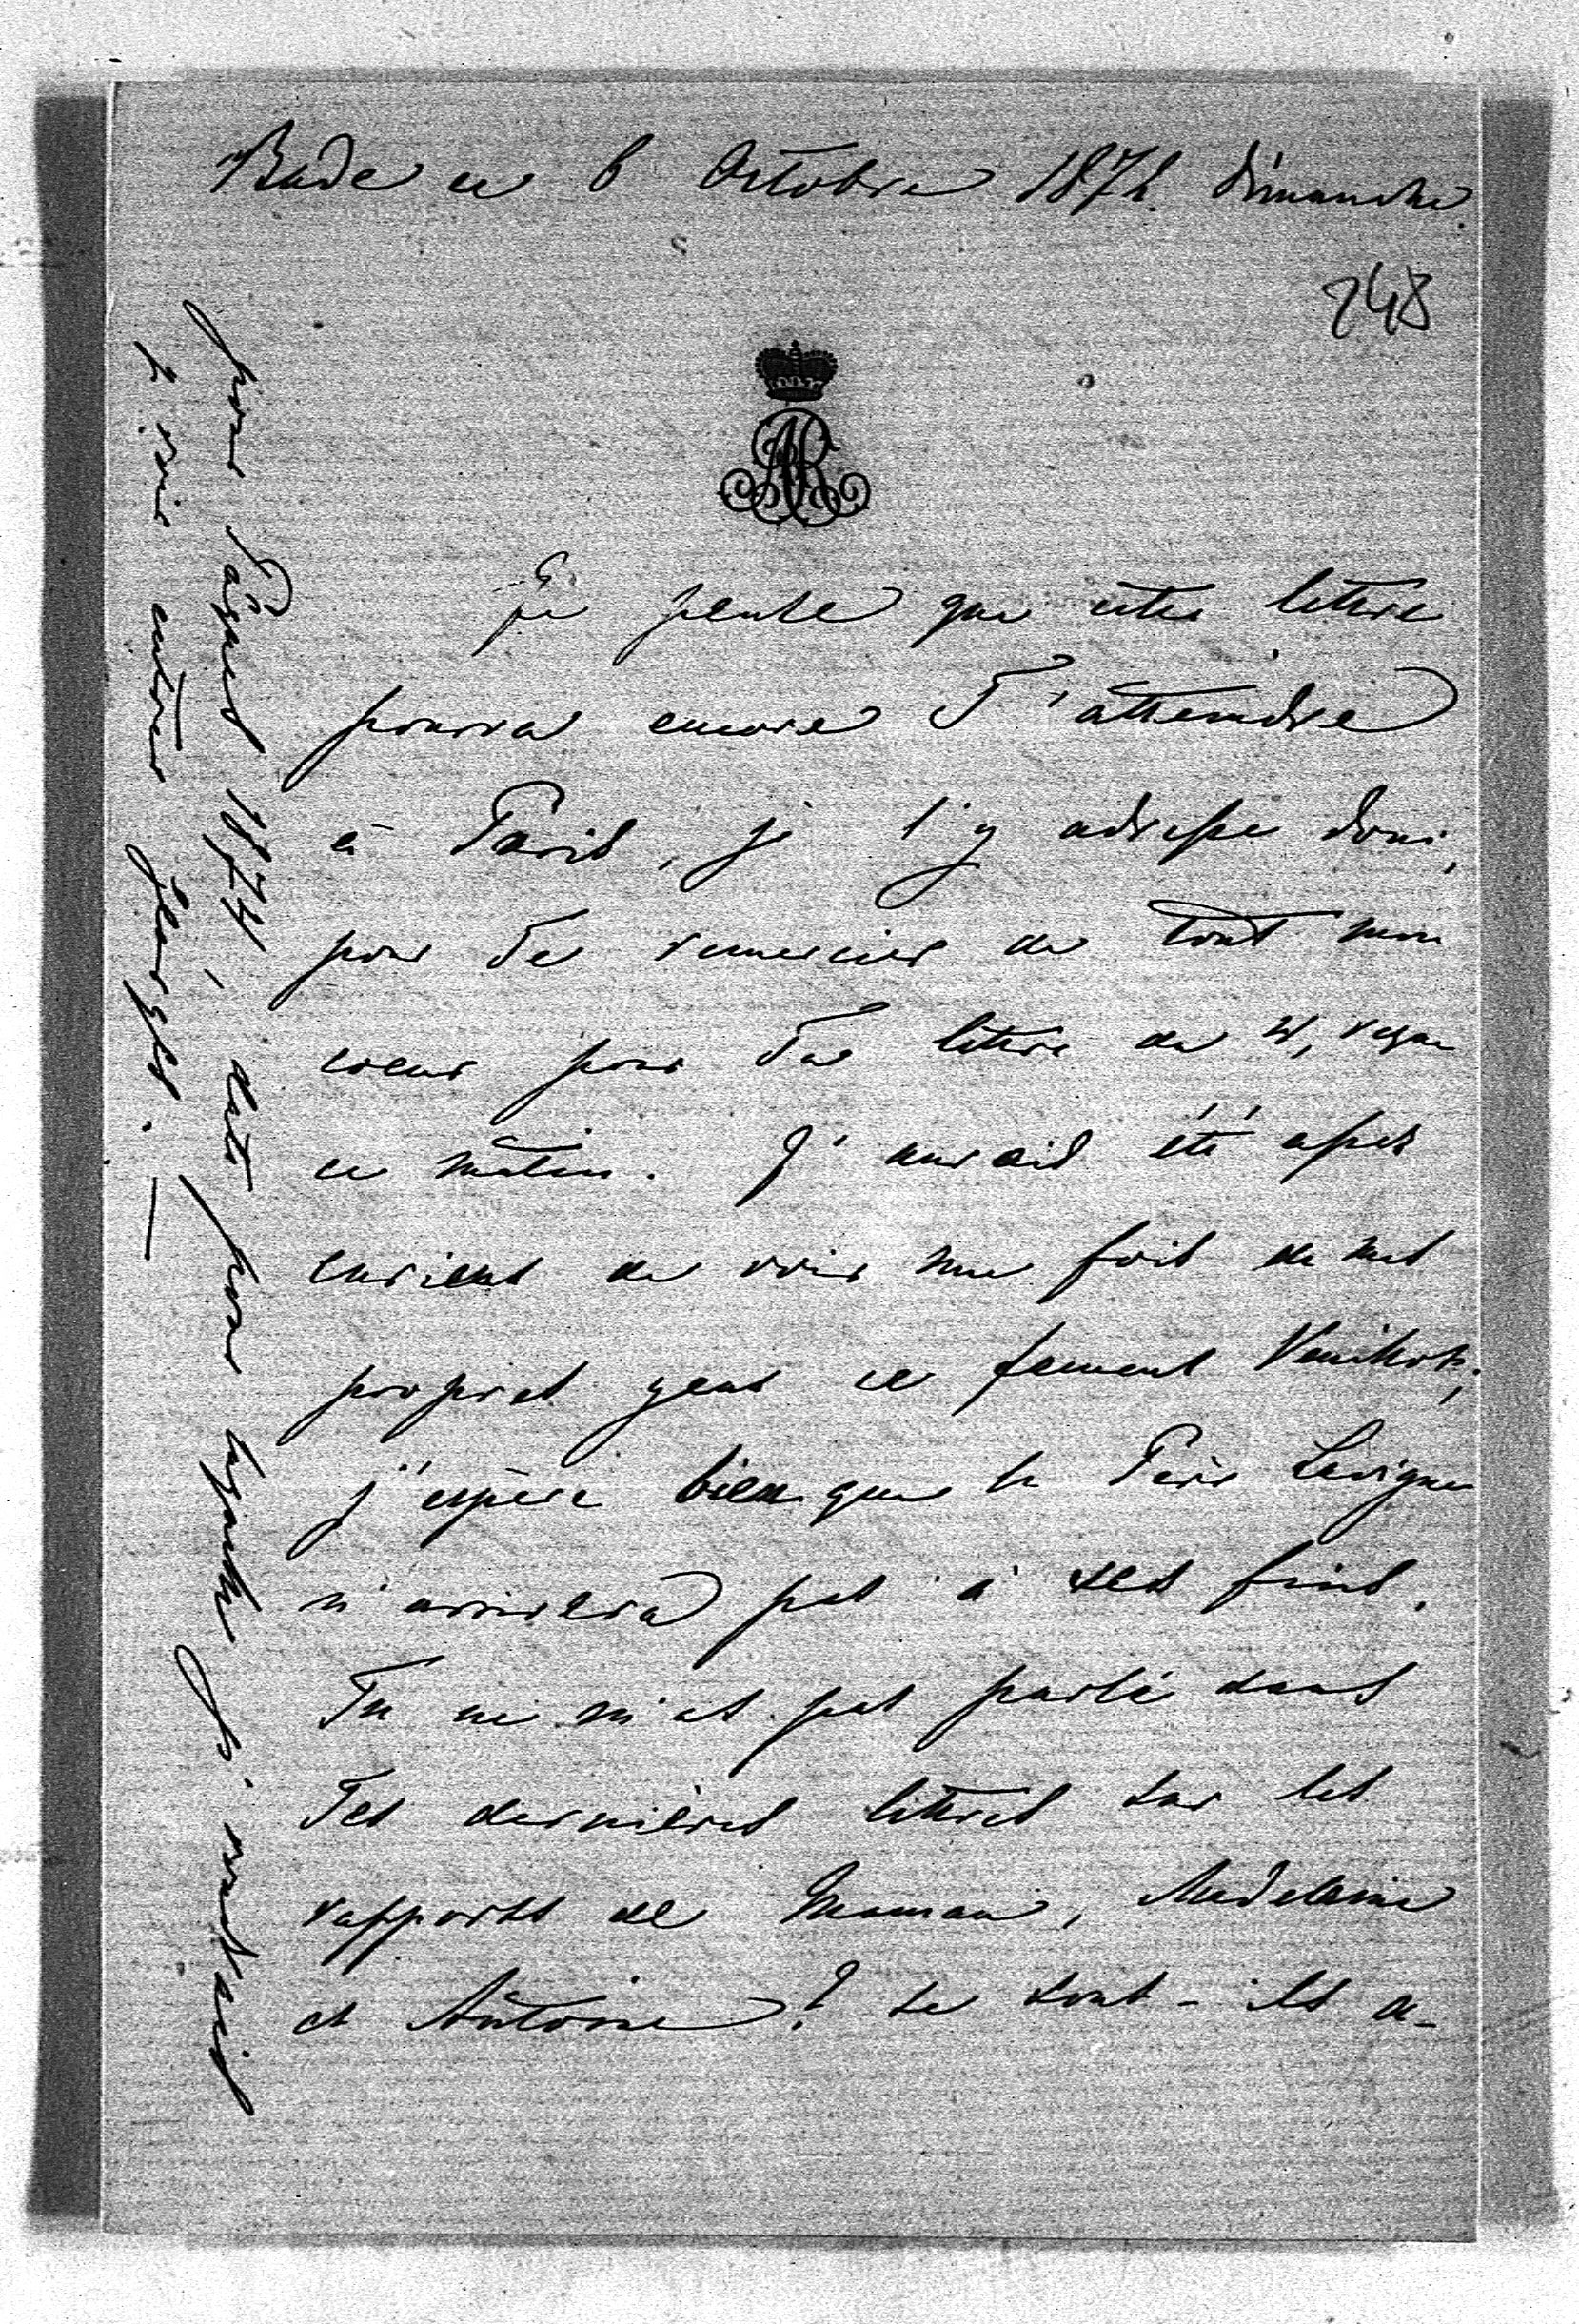 Bade ce 6 Octobre 1872. Dimanche.
248
AR
Je pense que cette lettre
pourra encore T'atteindre
à Paris, je l'y adresse donc,
pour Te remercier de tout mon
coeur pour Ta lettre du 4, reçue
ce matin. J'aurais été assez
curieux de voir une fois de mes
propres yeux ce fameux
j'espère bien que le Père Lavigne
n'arrivera pas à ses fins.
Tu ne m'as pas parlé dans
Tes dernières lettres sur les
rapports de Maman, Madelaine
et Antoine? se sont-ils a-
pour Pâques 1874, date pour laquelle je